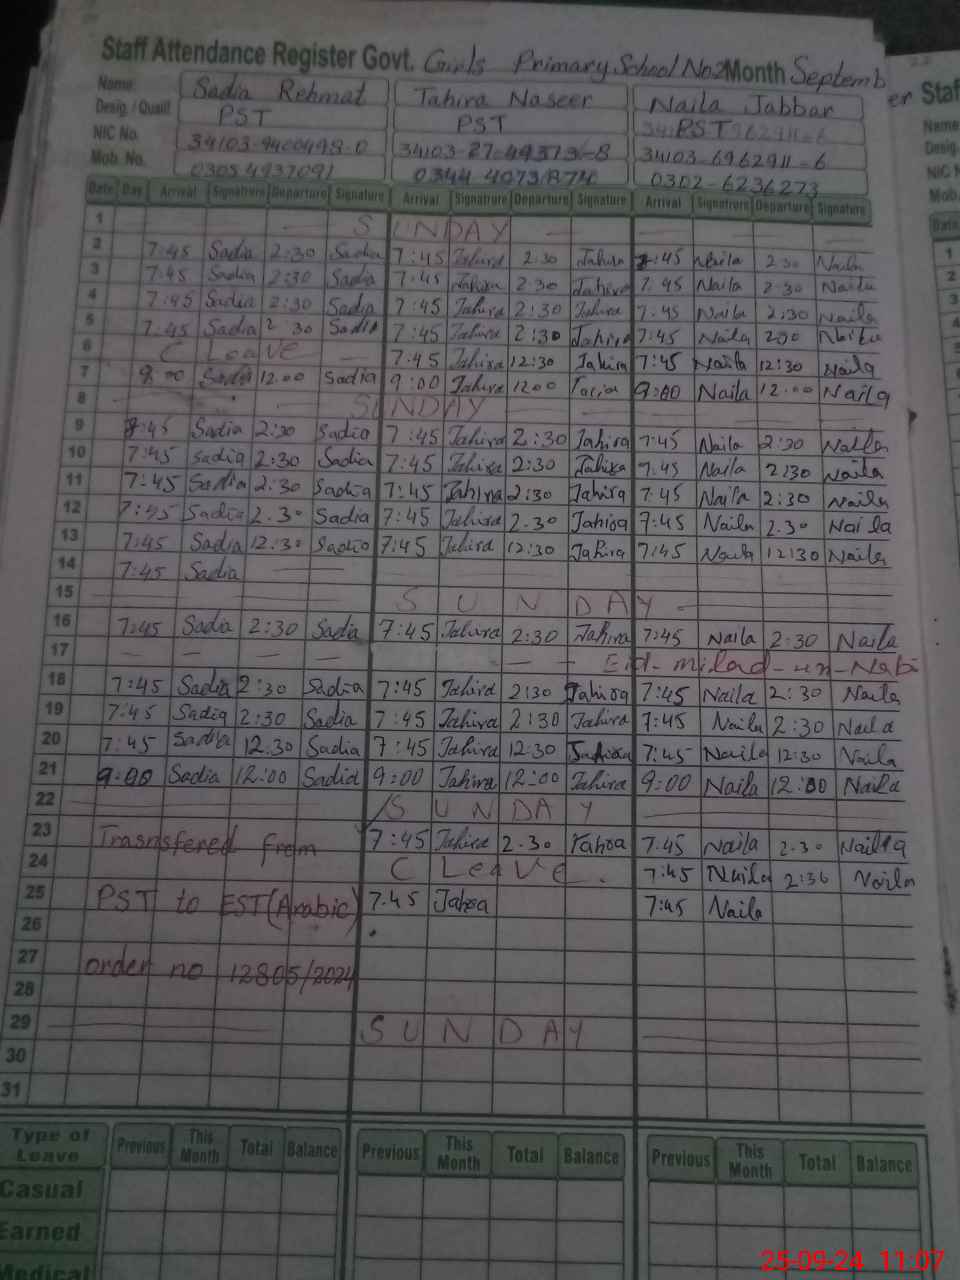 Staff Attendance Register Govt. Girls Primary School No2 Month September
Staf
Name: Sadia Rehmat Tahira Naseer Naila Jabbar
Name
Desig. / Qualif. PST PST PST
Desig.
NIC No. 34103-9400498-0 34103-8 34103-6962911-6
NIC N
Mob. No. 0305 4937091 0344 4073874 0302-6236273
Mob.
Date Day Arrival Signatrure Departure Signature Arrival Signatrure Departure Signature Arrival Signatrure Departure Signature
Date
1 SUNDAY
2 7:45 Sadia 2:30 Sadia 7:45 Tahira 2:30 Tahira 7:45 Naila 2:30 Naila
3 7:45 Sadia 2:30 Sadia 7:45 Tahira 2:30 Tahira 7:45 Naila 2:30 Naila
4 7:45 Sadia 2:30 Sadia 7:45 Tahira 2:30 Tahira 7:45 Naila 2:30 Naila
5 7:45 Sadia 2:30 Sadia 7:45 Tahira 2:30 Tahira 7:45 Naila Naila
6 C Leave 7:45 Tahira 12:30 Tahira 7:45 Naila 12:30 Naila
7 9:00 Sadia 12:00 Sadia 9:00 Tahira 12:00 9:00 Naila 12:00 Naila
8 SUNDAY
9 7:45 Sadia 2:30 Sadia 7:45 Tahira 2:30 Tahira 7:45 Naila 2:30 Naila
10 7:45 Sadia 2:30 Sadia 7:45 Tahira 2:30 Tahira 7:45 Naila 2:30 Naila
11 7:45 Sadia 2:30 Sadia 7:45 Tahira 2:30 Tahira 7:45 Naila 2:30 Naila
12 7:45 Sadia 2.30 Sadia 7:45 Tahira 2.30 Tahira 7:45 Naila 2.30 Naila
13 7:45 Sadia 12:30 Sadia 7:45 Tahira 12:30 Tahira 7:45 Naila 12:30 Naila
14 7:45 Sadia
15 SUNDAY
16 7:45 Sadia 2:30 Sadia 7:45 Tahira 2:30 Tahira 7:45 Naila 2:30 Naila
17 Eid-milad-un-Nabi
18 7:45 Sadia 2:30 Sadia 7:45 Tahira 2:30 Tahira 7:45 Naila 2:30 Naila
19 7:45 Sadia 2:30 Sadia 7:45 Tahira 2:30 Tahira 7:45 Naila 2:30 Naila
20 7:45 Sadia 12.30 Sadia 7:45 Tahira 12:30 Tahira 7:45 Naila 12:30 Naila
21 9:00 Sadia 12:00 Sadia 9:00 Tahira 12:00 Tahira 9:00 Naila 12:00 Naila
22 SUNDAY
23 Trasnsfered from 7:45 Tahira 2.30 Tahira 7.45 Naila 2.30 Naila
24 C Leave. 7:45 Naila 2:30 Naila
25 PST to EST (Arabic) 7.45 Tahira 7:45 Naila
26
27 order no 12805/2024
28
29 SUNDAY
30
31
Type of Leave Previous This Month Total Balance Previous This Month Total Balance Previous This Month Total Balance
Casual
Earned
Medical
25-09-24 11:07